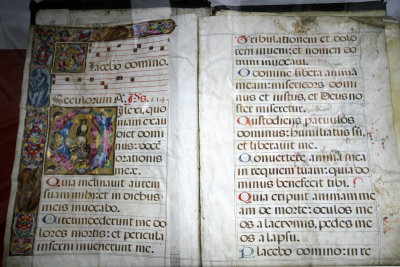 Placebo domino.
Seculorum A. Ps. 114
ilexi, quo
niam exau
diet domi
nus: vocē
orationis
meæ.
Quia inclinavit aurem
suam mihi: et in diebus
meis invocabo.
Circumdederunt me do
lores mortis: et pericula
inferni invenerunt me.
Tribulationem et dolo
rem inveni: et nomen do
mini invocavi.
O domine libera animā
meam: misericors domi
nus et iustus, et Deus nos
ter miseretur.
Custodiens parvulos
dominus: humiliatus sū,
et liberavit me.
Convertere anima mea
in requiem tuam: quia do
minus benefecit tibi.
Quia eripuit animam me
am de morte: oculos me
os a lacrymis, pedes me
os a lapsu.
Placebo domino: in re